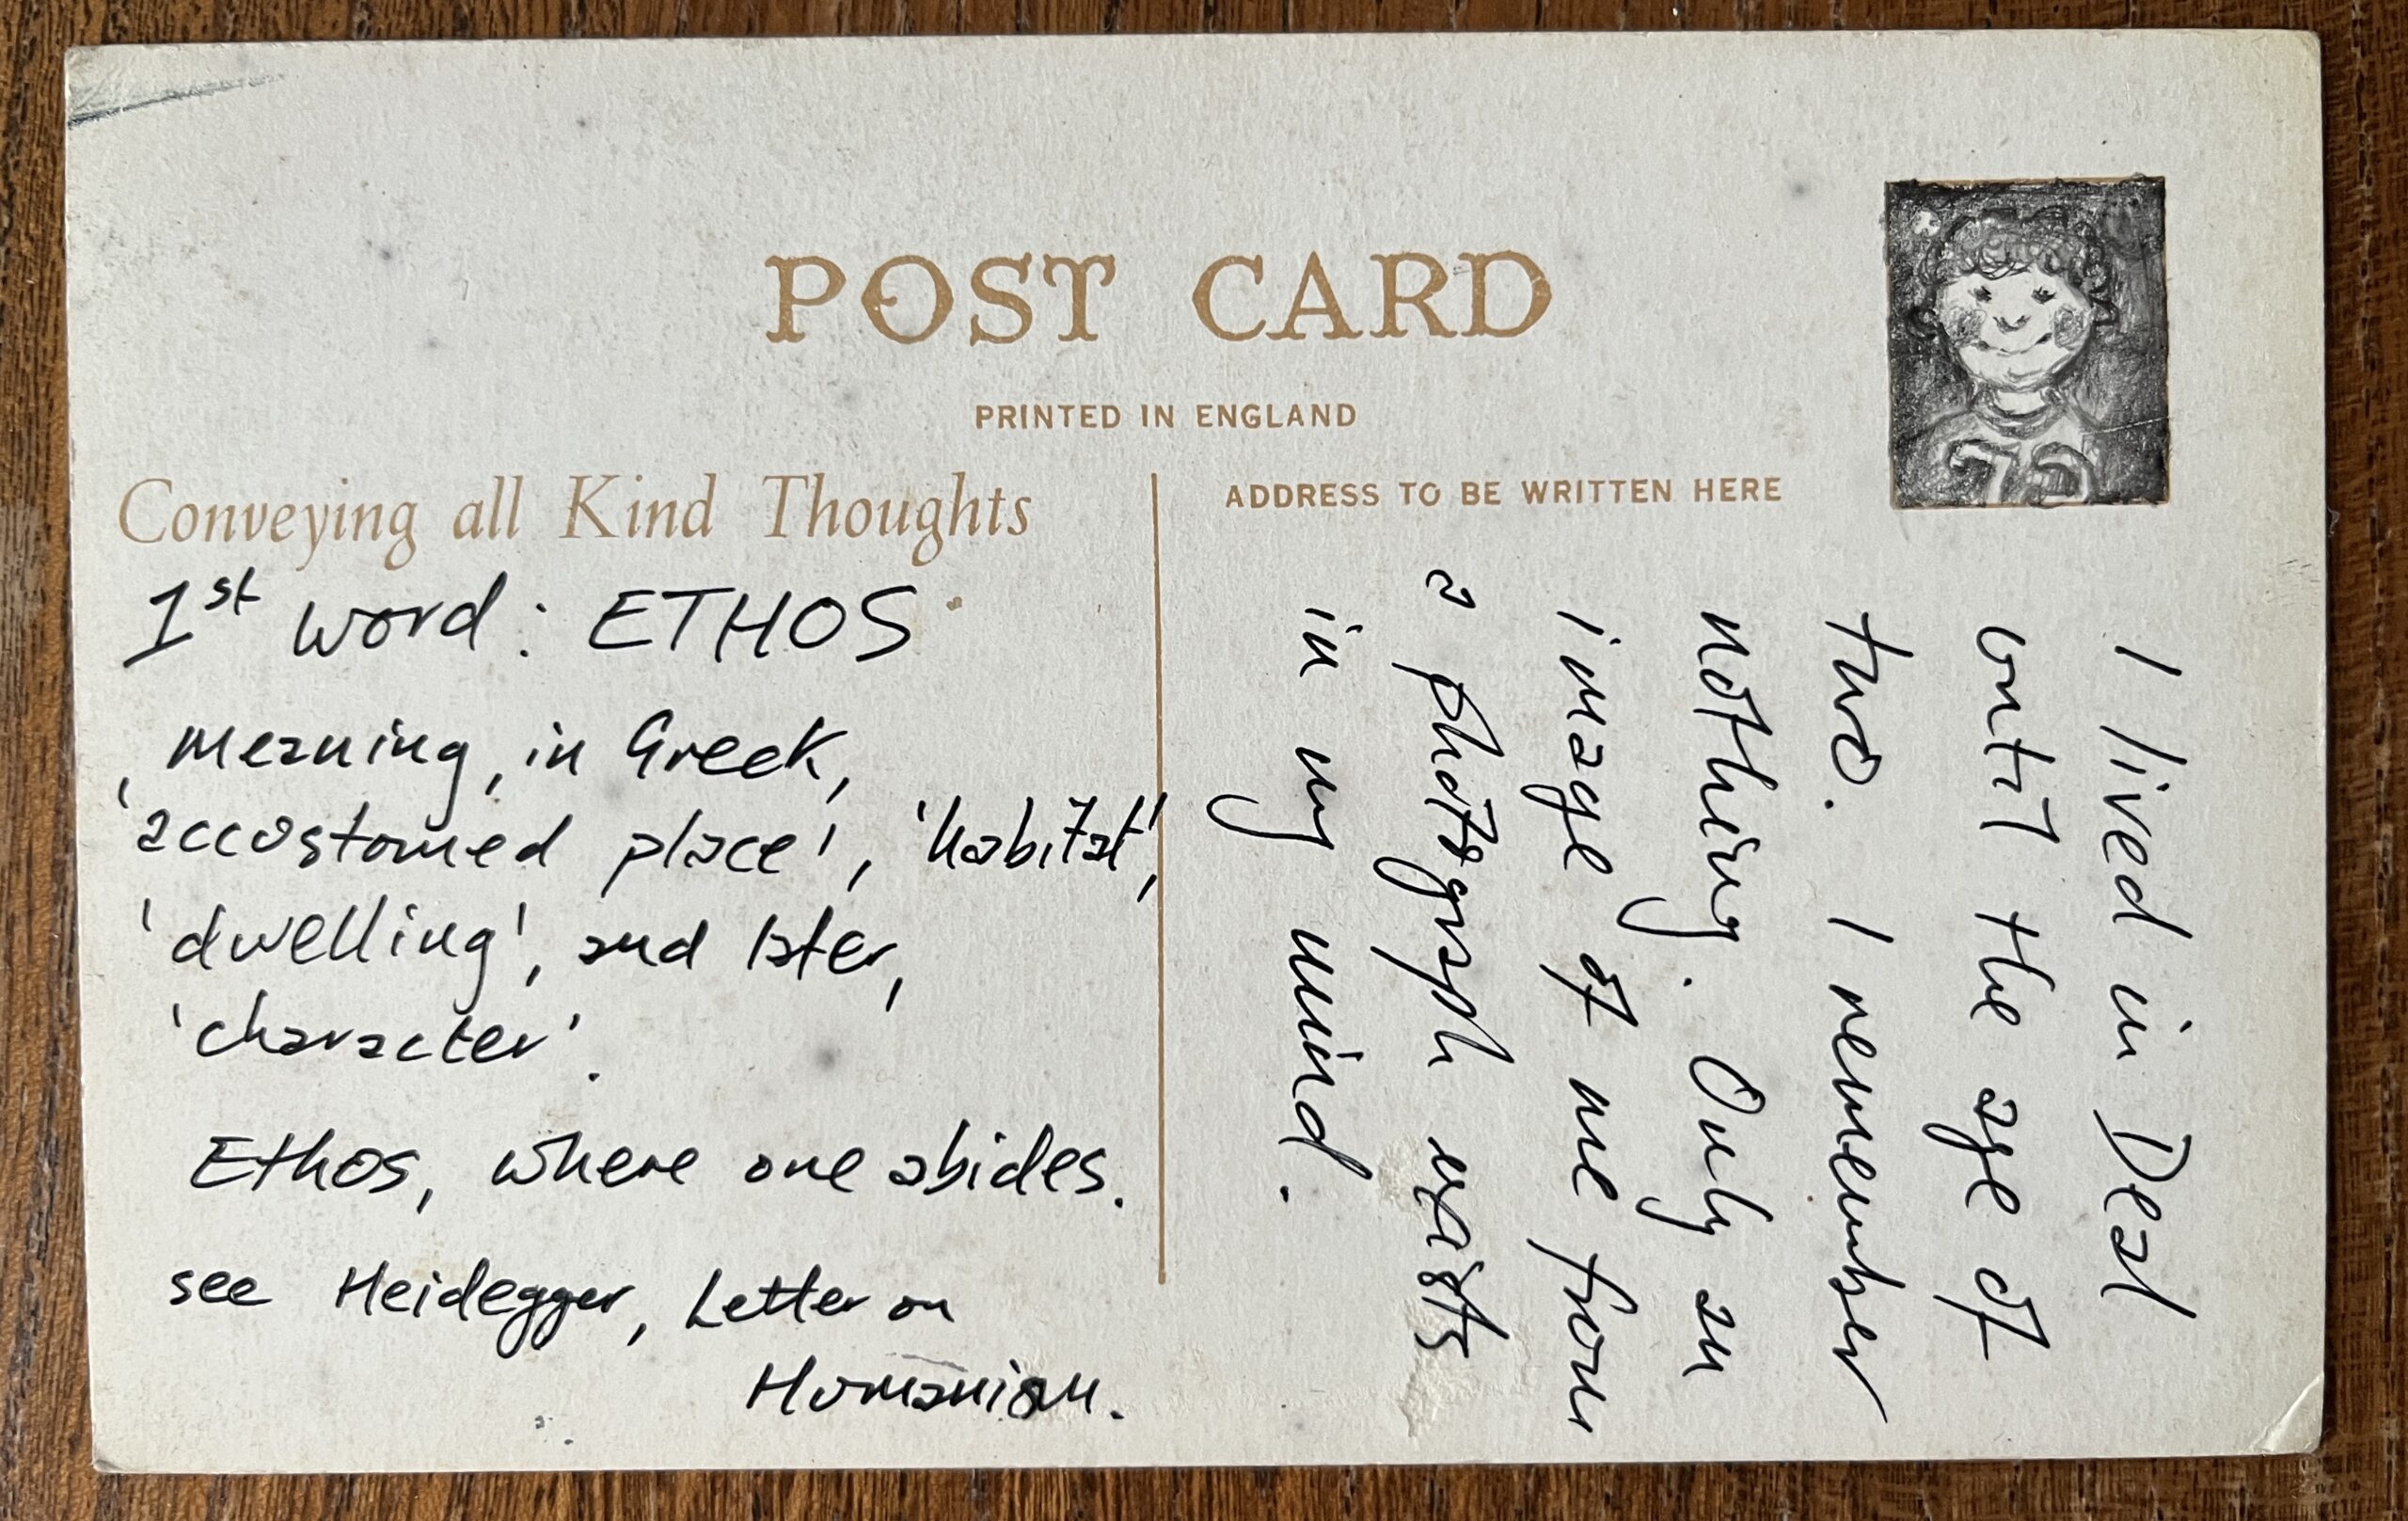 POST CARD
PRINTED IN ENGLAND
Conveying all Kind Thoughts
ADDRESS TO BE WRITTEN HERE
1st word: ETHOS
meaning, in Greek,
'accustomed place', 'habitat',
'dwelling', and later,
'character'.
Ethos, where one abides.
see Heidegger, Letter on
Humanism.
I lived in Deal
until the age of
two. I remember
nothing. Only an
image of me from
a photograph exists
in my mind.